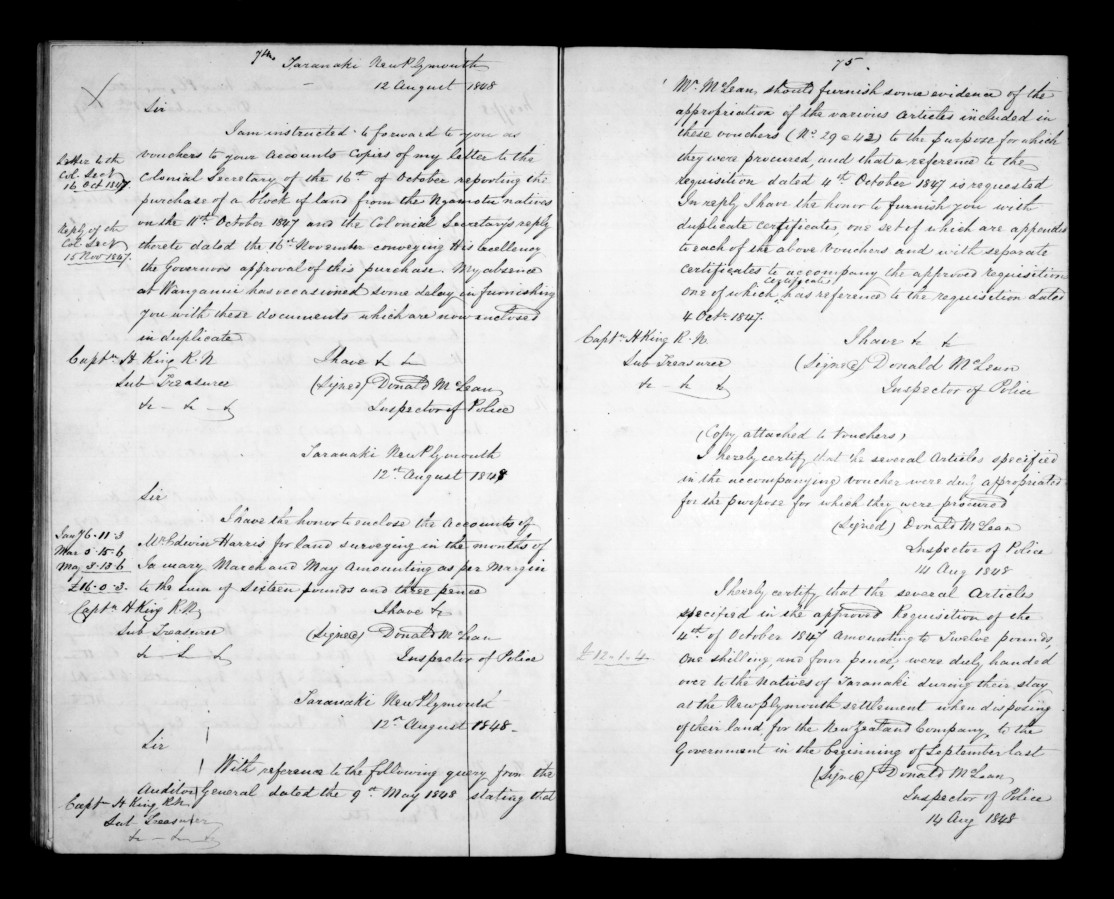 74.
Taranaki New Plymouth
12 August 1848
Sir
I am instructed to forward to you as
Letter to the
Col. Secy
16 Oct 1847
vouchers to your accounts Copies of my letter to the
Colonial Secretary of the 16th of October reporting the
purchase of a block of land from the Ngamotu natives
on the 11th October 1847 and the Colonial Secretary's reply
Reply of the
Col. Secy
15 Nov 1847.
thereto dated the 16th November conveying His Excellency
the Governors approval of this purchase. My absence
at Wanganui has occasioned some delay in furnishing
you with these documents which are now enclosed
in duplicate
Captn H. King R.N. I have &c &c
Sub Treasurer (Signed) Donald McLean
&c - &c - &c Inspector of Police
Taranaki New Plymouth
12th August 1848
Sir
I have the honor to enclose the accounts of
Jany 6-11-3
Mar 5-15-6
May 3-13-6
£16-0-3.
Mr Edwin Harris for land surveying in the months of
January March and May amounting as per margin
to the sum of Sixteen pounds and three pence
Captn H King R.N. I have &c
Sub Treasurer (Signed) Donald McLean
&c &c &c Inspector of Police
Taranaki New Plymouth
12th August 1848-
Sir
With reference to the following query from the
Auditor General dated the 9th May 1848 stating that
Captn H King R.N.
Sub Treasurer
&c - &c - &c
75.
Mr. McLean, should furnish some evidence of the
appropriation of the various articles included in
these vouchers (No. 29 & 42) to the purpose for which
they were procured and that a reference to the
requisition dated 4th October 1847 is requested
In reply I have the honor to furnish you with
duplicate certificates, one set of which are appended
to each of the above vouchers and with separate
certificates to accompany the approved requisition
one of which certificates has reference to the requisition dated
4 Octr 1847.
Captn H King R.N. I have &c &c
Sub Treasurer (Signed) Donald McLean
&c - &c - &c Inspector of Police
(Copy attached to Vouchers)
I hereby certify that the several Articles specified
in the accompanying voucher were duly appropriated
for the purpose for which they were procured
(Signed) Donald McLean
Inspector of Police
14 Aug 1848
I hereby certify that the several Articles
specified in the approved Requisition of the
4th of October 1847 amounting to Twelve pounds,
£12-1-4-
One shilling and four pence, were duly handed
over to the Natives of Taranaki during their stay
at the New Plymouth settlement when disposing
of their land for the New Zealand Company, to the
Government in the beginning of September last
(Signed) Donald McLean
Inspector of Police
14 Aug 1848